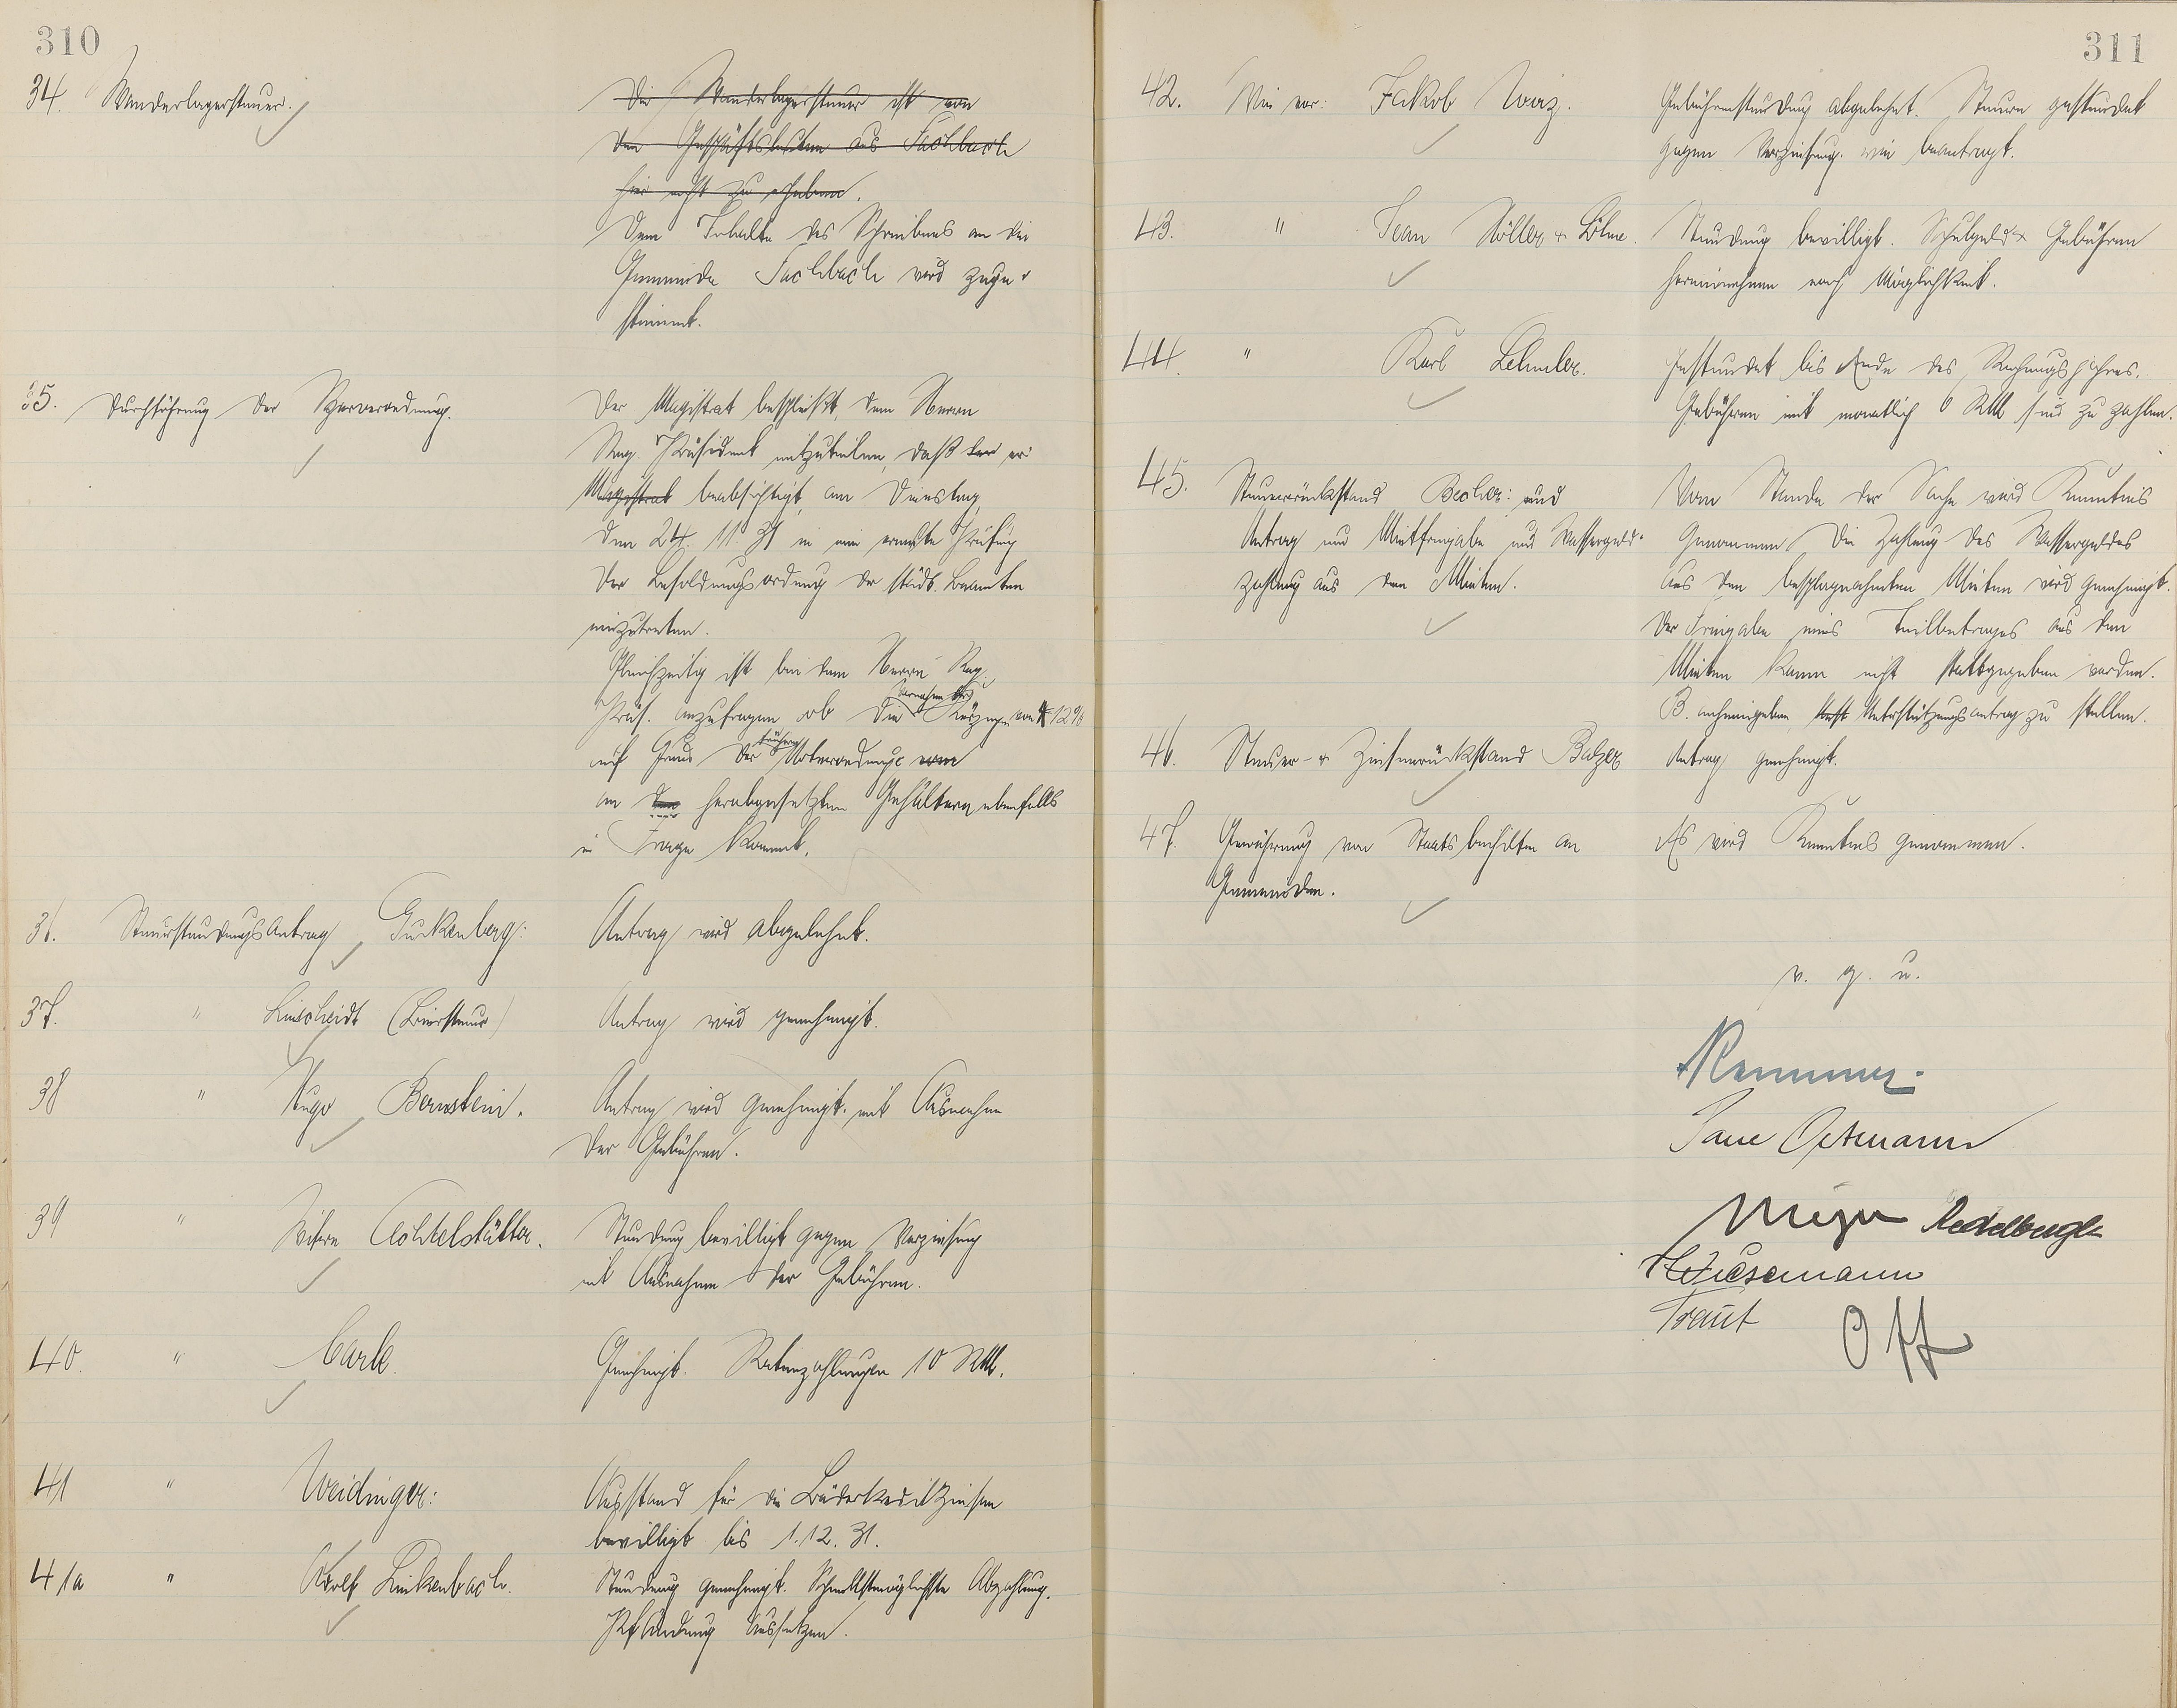 310
34. Wanderlagersteuer.
Die Wanderlagersteuer ist von
den Geschäftsleuten aus Fachbach
hier nicht zu erheben.
Dem Inhalte des Schreibens an die
Gemeinde Fachbach wird zuge-
stimmt.
35. Durchführung der Sparverordnung.
Der Magistrat beschließt, dem Herrn
Reg. Präsident mitzuteilen, daß er
Magistrat beabsichtigt, am Dienstag,
den 24. 11. 31 in eine erneute Prüfung
der Besoldungsordnung der städt. Beamten
einzutreten.
Gleichzeitig ist bei dem Herrn Reg.
Präs. anzufragen ob die Kürzungen von 12%
auf Grund der früheren Notverordnung vom
an den herabgesetzten Gehältern ebenfalls
in Frage kommt.
36. Steuerstundungsantrag Guckenberg:
Antrag wird abgelehnt.
37. " Linscheidt (Biersteuer)
Antrag wird genehmigt.
38 " Hugo Bernstein.
Antrag wird genehmigt mit Ausnahme
der Gebühren.
39 " Witwe Achtelstätter.
Stundung bewilligt gegen Verzinsung
mit Ausnahme der Gebühren.
40. " Carle.
Genehmigt. Ratenzahlungen 10 RM.
41 " Weidinger:
Ausstand für die Bäderkreditzinsen
bewilligt bis 1.12.31.
41a " Adolf Linkenbach.
Stundung genehmigt. Schnellstmöglichste Abzahlung.
Pfändung aussetzen.
311
42. Wie vor: Jakob Wirz.
Gebührenstundung abgelehnt. Steuern gestundet
gegen Verzinsung wie beantragt.
43. " Jean Möller & Söhne.
Stundung bewilligt. Schulgeld & Gebühren
hereinnehmen nach Möglichkeit.
44. " Karl Lehmler.
Gestundet bis Ende des Rechnungsjahres.
Gebühren mit monatlich 6 RM sind zu zahlen.
45. Steuerrückstand Becher: und
Antrag um Mietfreigabe und Wassergeld-
zahlung aus den Mieten.
Vom Stande der Sache wird Kenntnis
Genommen. Die Zahlung des Wassergeldes
aus den beschlagnahmten Mieten wird genehmigt.
Der Freigabe eines Teilbetrages aus den
Mieten kann nicht stattgegeben werden.
B. anheimgeben, Unterstützungsantrag zu stellen.
46. Steuer- & Zinsenrückstand Balzer
Antrag genehmigt.
47. Gewährung von Staatsbeihilfen an
Gemeinden.
Es wird Kenntnis genommen.
v. g. u.
Meyer
Wiesemann
Traut Off